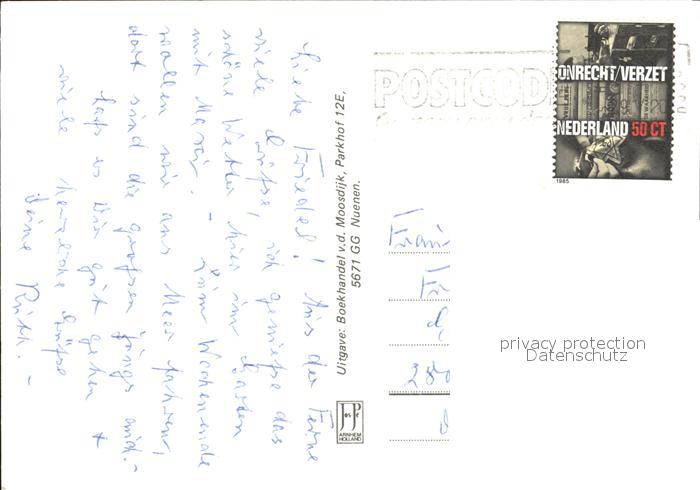 Liebe Friedel! Aus der Ferne
viele Grüße, ich genieße das
schöne Wetter hier im Garten
mit Maxi. - Zum Wochenende
wollen wir ans Meer fahren,
dort sind die großen Jungs auch.-
Laß es Dir gut gehen +
viele herzliche Grüße
Deine Ruth. -
Uitgave: Boekhandel v.d. Moosdijk, Parkhof 12E,
5671 GG Nuenen.
JosPé
ARNHEM
HOLLAND
POSTCOD
ONRECHT/VERZET
NEDERLAND 50 CT
1985
privacy protection
Datenschutz